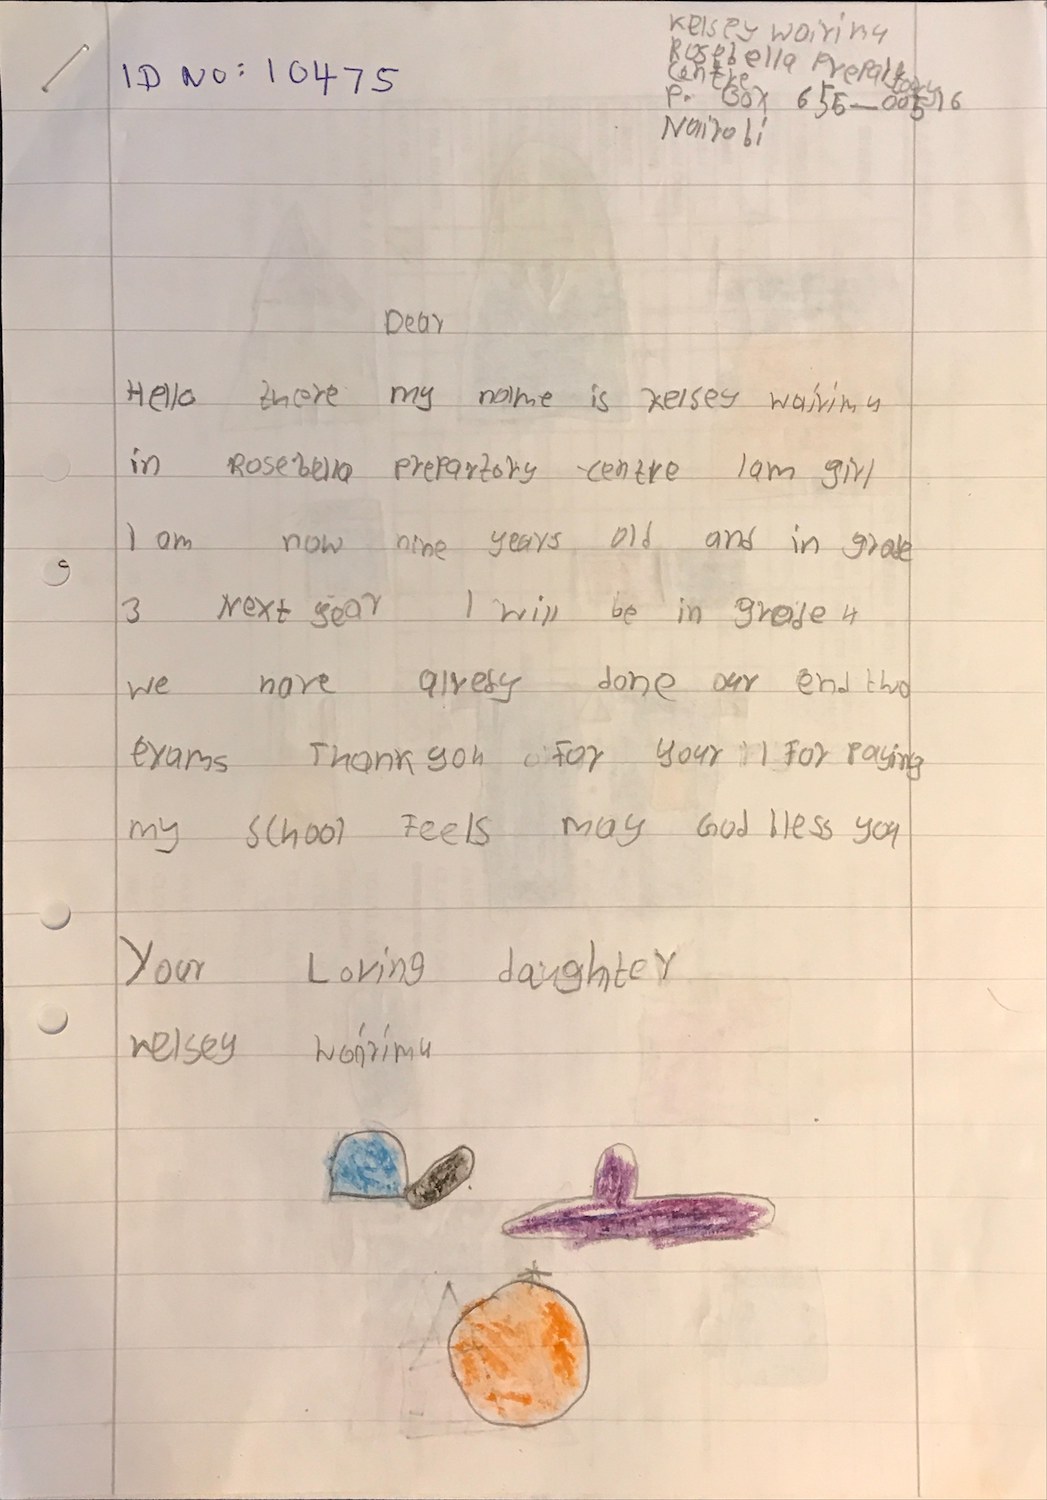 ID NO: 10475
Kelsey Wairimu
Rosebella Prepartory
Centre
P. Box 656-00516
Nairobi
Dear
Hello there my name is kelsey wairimu
in Rosebella prepartory centre I am girl
I am now nine years old and in grade
3 Next year I will be in grade 4
we have alredy done our end two
exams Thank you for your for paying
my school feels may God bless you
Your Loving daughter
kelsey wairimu